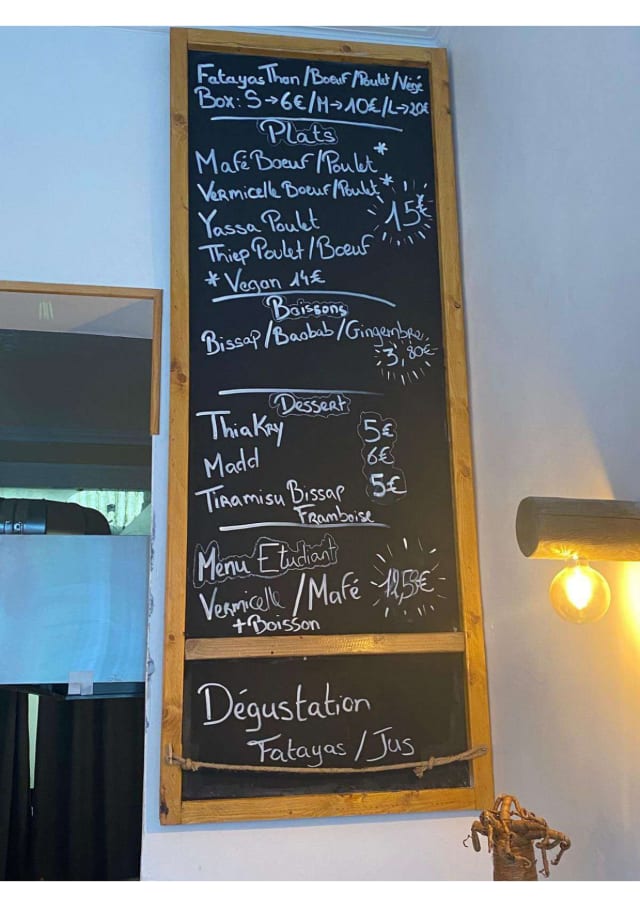 Fatayas Thon/Boeuf/Poulet/Végé
Box: S→6€/M→10€/L→20€
Plats
Mafé Boeuf/Poulet*
Vermicelle Boeuf/Poulet*
15€
Yassa Poulet
Thiep Poulet/Boeuf
* Vegan 14€
Boissons
Bissap/Baobab/Gingembre
3,80€
Dessert
Thiakry 5€
Madd 6€
Tiramisu Bissap 5€
Framboise
Menu Etudiant
Vermicelle/Mafé
+Boisson
Dégustation
Fatayas/Jus